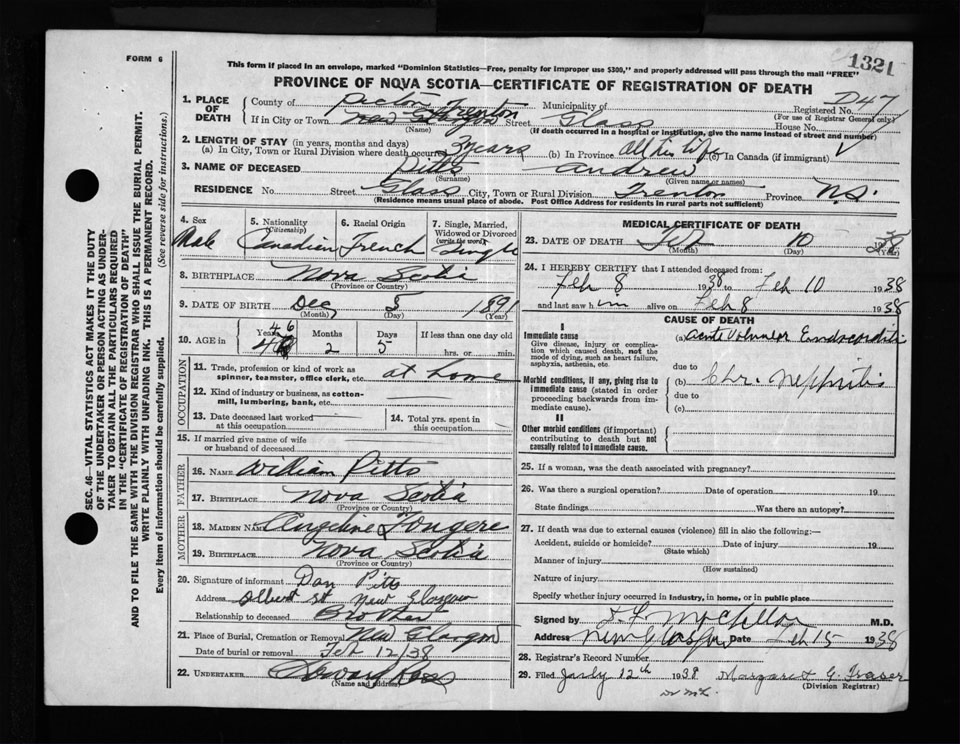 FORM 6
1321
This form if placed in an envelope, marked "Dominion Statistics—Free, penalty for improper use $300," and properly addressed will pass through the mail "FREE"
PROVINCE OF NOVA SCOTIA—CERTIFICATE OF REGISTRATION OF DEATH
SEC. 46—VITAL STATISTICS ACT MAKES IT THE DUTY
OF THE UNDERTAKER OR PERSON ACTING AS UNDER-
TAKER TO OBTAIN ALL THE PARTICULARS REQUIRED
IN THE "CERTIFICATE OF REGISTRATION OF DEATH"
AND TO FILE THE SAME WITH THE DIVISION REGISTRAR WHO SHALL ISSUE THE BURIAL PERMIT.
WRITE PLAINLY WITH UNFADING INK. THIS IS A PERMANENT RECORD.
Every item of information should be carefully supplied. (See reverse side for instructions.)
1. PLACE OF DEATH County of Pictou Municipality of Registered No. D47
(For use of Registrar General only)
If in City or Town New Glasgow Trenton Street Glass House No.
(Name) (If death occurred in a hospital or institution, give the name instead of street and number)
2. LENGTH OF STAY (in years, months and days)
(a) In City, Town or Rural Division where death occurred 3 years (b) In Province All his life (c) In Canada (if immigrant)
3. NAME OF DECEASED Pitts Andrew
(Surname) (Given name or names)
RESIDENCE No. Street Glass City, Town or Rural Division Trenton Province N.S.
(Residence means usual place of abode. Post Office Address for residents in rural parts not sufficient)
4. Sex 5. Nationality (Citizenship) 6. Racial Origin 7. Single, Married, Widowed or Divorced (write the word)
Male Canadian French Single
8. BIRTHPLACE Nova Scotia
(Province or Country)
9. DATE OF BIRTH Dec 5 1891
(Month) (Day) (Year)
10. AGE in Years Months Days If less than one day old
46 2 5 hrs. or min.
OCCUPATION
11. Trade, profession or kind of work as spinner, teamster, office clerk, etc. at home
12. Kind of industry or business, as cotton-mill, lumbering, bank, etc.
13. Date deceased last worked at this occupation 14. Total yrs. spent in this occupation
15. If married give name of wife or husband of deceased
FATHER
16. NAME William Pitts
17. BIRTHPLACE Nova Scotia
(Province or Country)
MOTHER
18. MAIDEN NAME Angeline Fougere
19. BIRTHPLACE Nova Scotia
(Province or Country)
20. Signature of informant Dan Pitts
Address Albert St New Glasgow
Relationship to deceased Brother
21. Place of Burial, Cremation or Removal New Glasgow
Date of burial or removal Feb 12/38
22. UNDERTAKER
(Name and address)
MEDICAL CERTIFICATE OF DEATH
23. DATE OF DEATH Feb 10 1938
(Month) (Day) (Year)
24. I HEREBY CERTIFY that I attended deceased from:
Feb 8 1938 to Feb 10 1938
and last saw him alive on Feb 8 1938
CAUSE OF DEATH
I
Immediate cause
Give disease, injury or complication which caused death, not the mode of dying, such as heart failure, asphyxia, asthenia, etc.
(a) Acute Endocarditis
due to
Morbid conditions, if any, giving rise to immediate cause (stated in order proceeding backwards from immediate cause).
(b) Chr. Nephritis
due to
(c)
II
Other morbid conditions (if important) contributing to death but not causally related to immediate cause.
25. If a woman, was the death associated with pregnancy?
26. Was there a surgical operation? Date of operation 19
State findings Was there an autopsy?
27. If death was due to external causes (violence) fill in also the following:—
Accident, suicide or homicide? Date of injury 19
(State which)
Manner of injury
(How sustained)
Nature of injury
Specify whether injury occurred in industry, in home, or in public place
Signed by M.D.
Address New Glasgow Date Feb 15 1938
28. Registrar's Record Number
29. Filed July 12th 1938 Margaret G. Fraser
(Division Registrar)